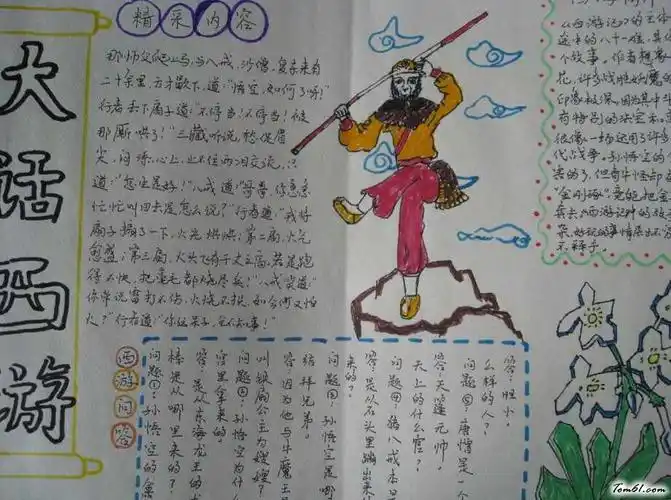 大话西游
精采内容
那师父爬上马,与八戒、沙僧,复东来有
二十余里,方才歇下,道:“悟空,如何了呀!”
行者丢下扇子道:“不停当!不停当!被
那厮哄了!”三藏听说,愁促眉
尖,闷添心上,止不住两泪交流,只
道:“怎生是好!”八戒道:“哥哥,你急急
忙忙叫回去是怎么说?”行者道:“我将
扇子搧了一下,火光烘烘;第二扇,火气
愈盛;第三扇,火头飞有千丈之高。若是跑
得不快,把毫毛都烧尽矣!”八戒笑道:“
你常说雷打不伤,火烧不损,如今何又怕
火?”行者道:“你这呆子,全不知事!
《西游记》的主
途中的八十一难。
个故事,作者想象
花,许多战胜妖魔
印象极深,因为其中
很像一场运用了许多
代战争,孙悟空的
害的了,但青牛怪却
“金刚琢”,竟能把金
来好玩的事情层出不
西游问答
问题①:孙悟空的金
棒是从哪里来的?
答:是从东海龙王的
宫里拿来的。
问题②:孙悟空为什
叫铁扇公主为嫂嫂?
答:因为他与牛魔王
结拜兄弟。
问题③:孙悟空是哪
来的?
答:是从石头里蹦出来
问题④:猪八戒本是
天上的什么官?
答:天篷元帅。
问题⑤:唐僧是一个
么样的人?
答:胆小。
Tom61.com